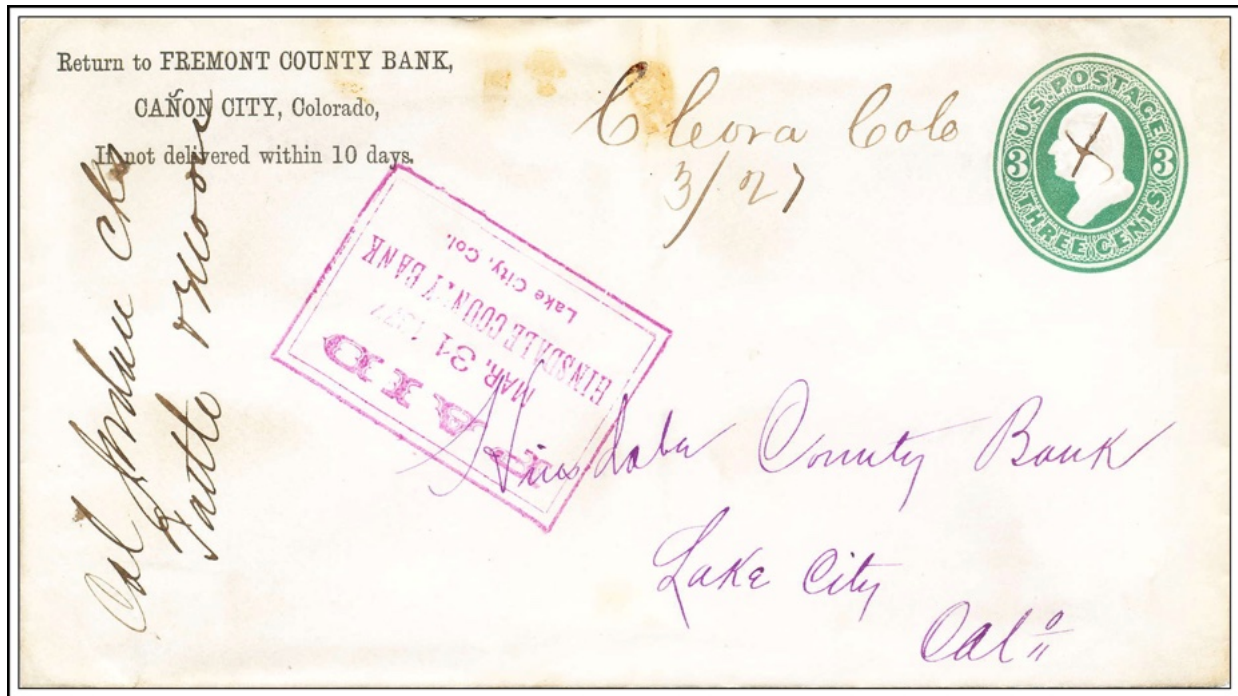 Return to FREMONT COUNTY BANK,
CAÑON CITY, Colorado,
If not delivered within 10 days.
Cleora Colo
3/27
U.S. POSTAGE
3 3
THREE CENTS
PAID
MAR. 31 1877
HINSDALE COUNTY BANK
Lake City, Col.
Hinsdale County Bank
Lake City
Colo
Col
Tuttle & Moore